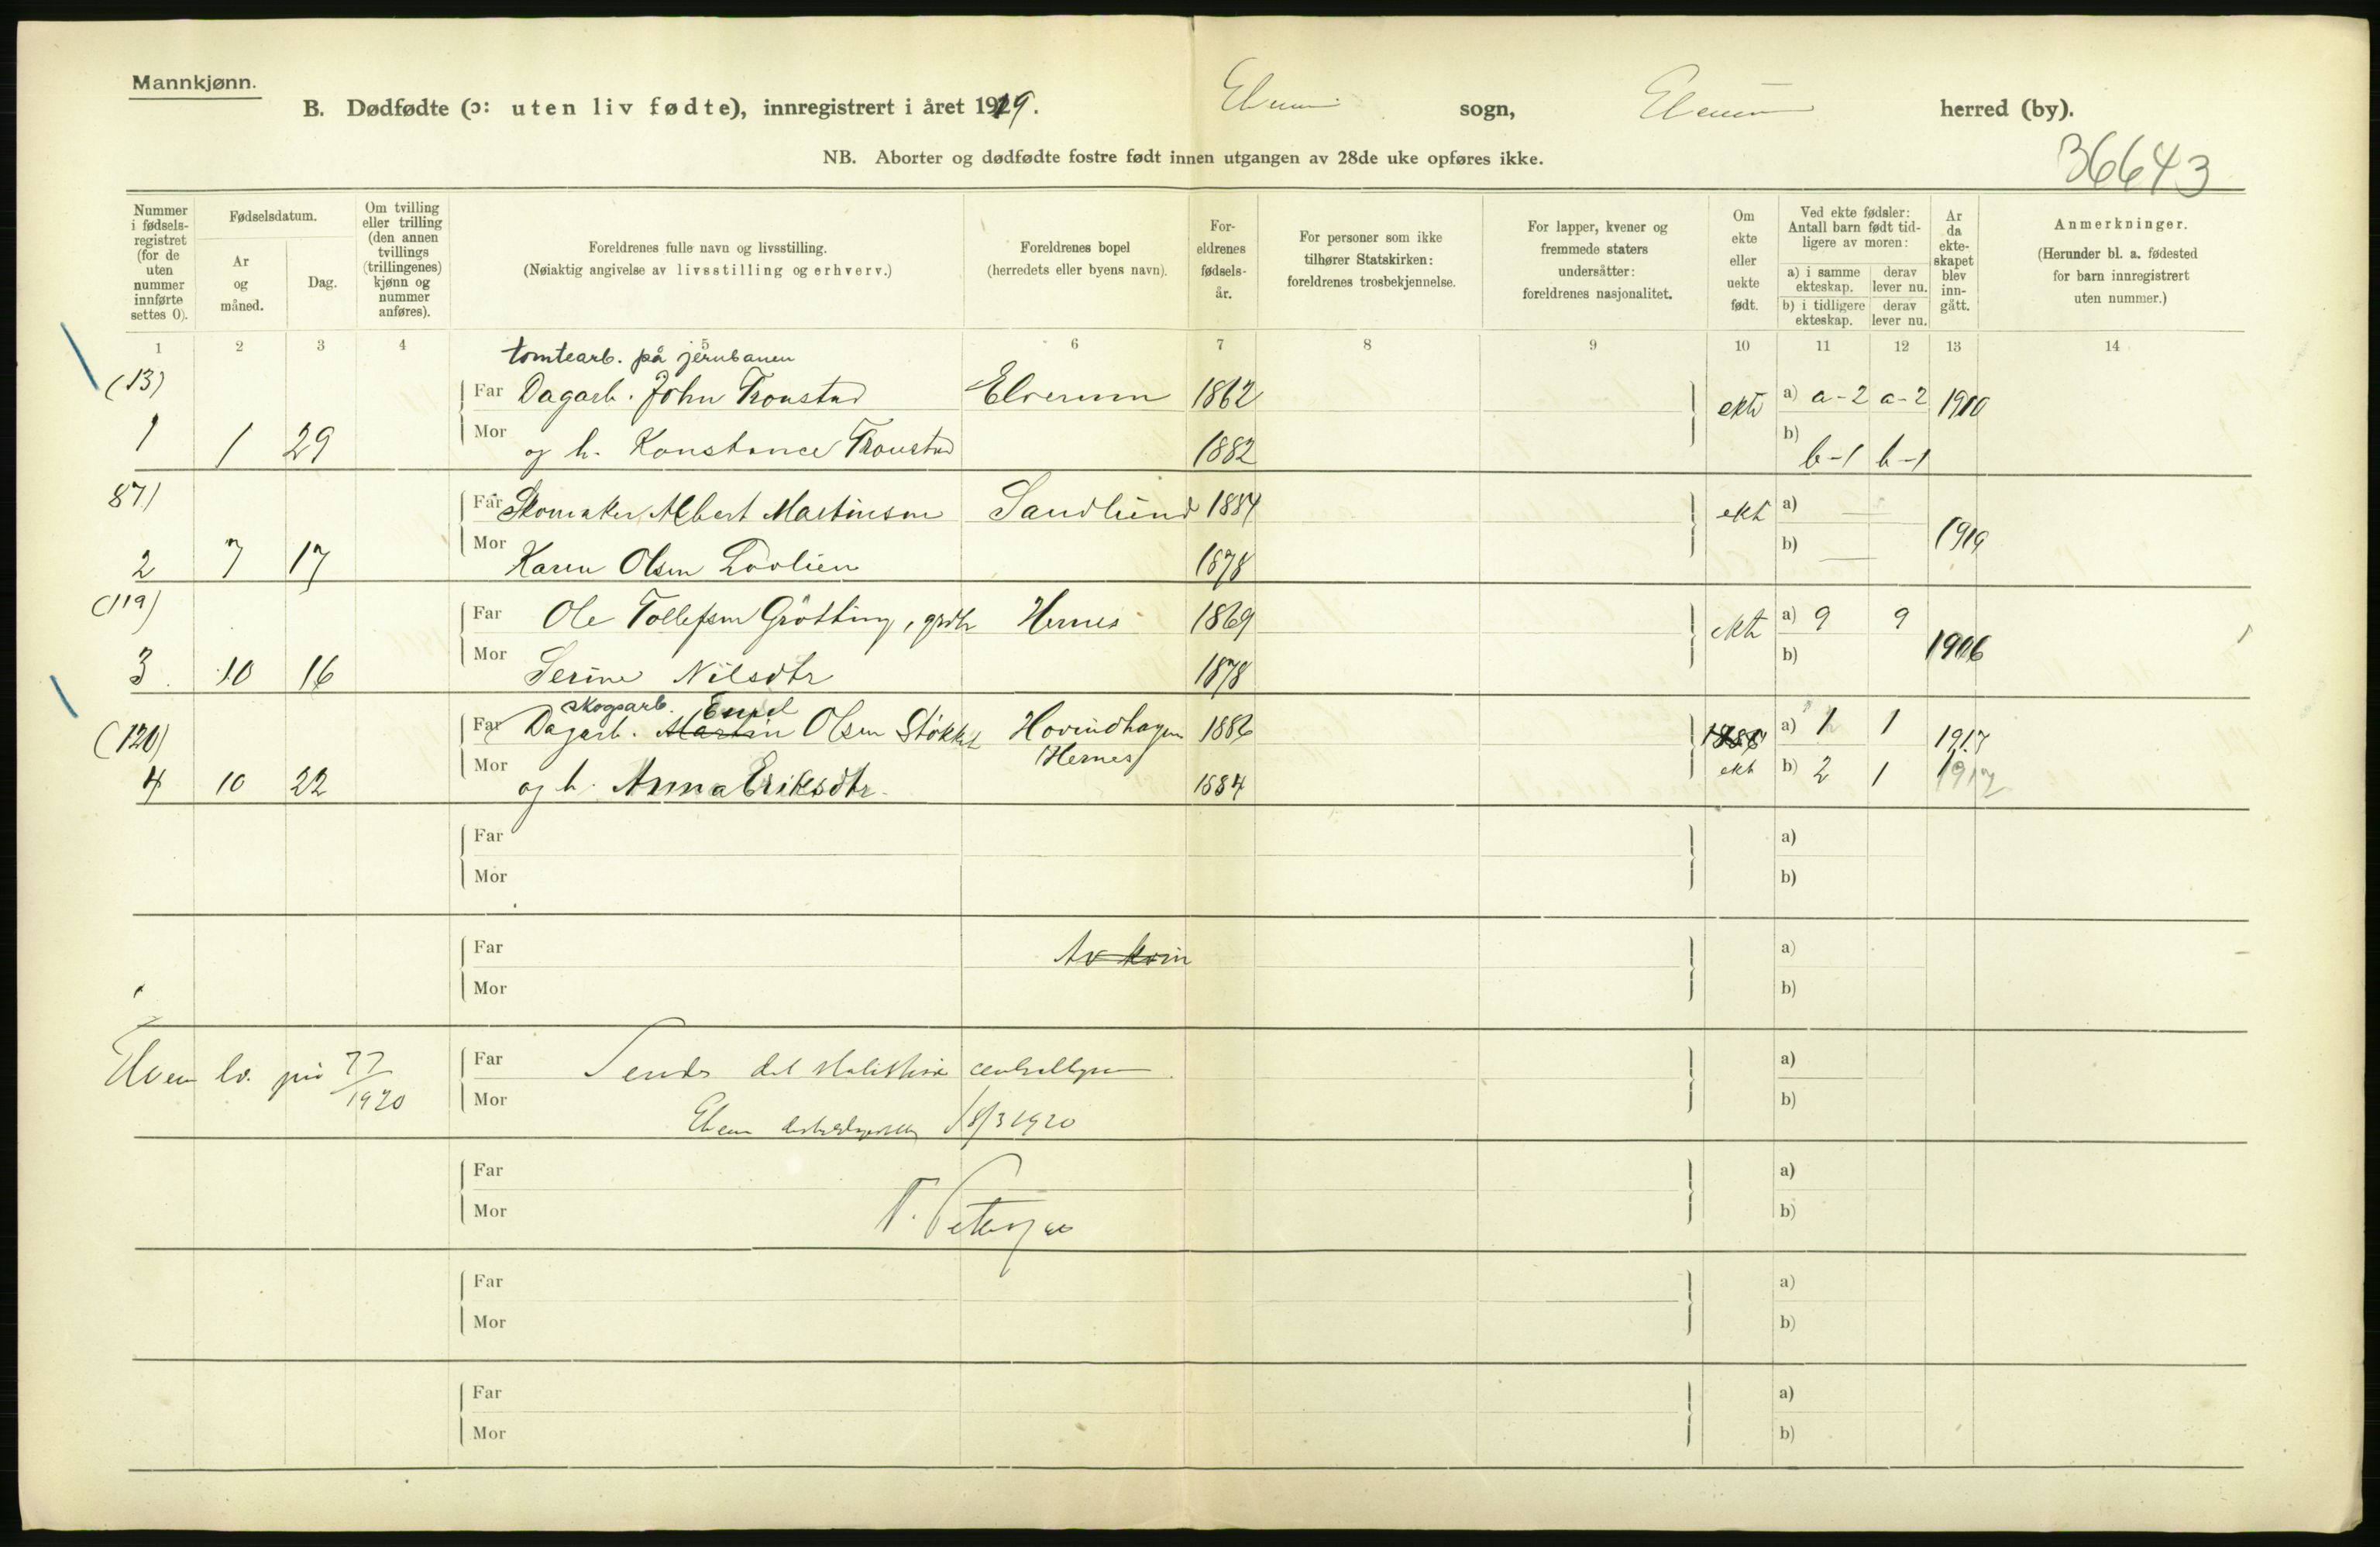 Mannkjønn.
B. Dødfødte (ɔ: uten liv fødte), innregistrert i året 1919. Elverum sogn, Elverum herred (by).
NB. Aborter og dødfødte fostre født innen utgangen av 28de uke opføres ikke.
36643
Nummer i fødsels-registret (for de uten nummer innførte settes 0).
Fødselsdatum.
Ar og måned.
Dag.
Om tvilling eller trilling (den annen tvillings (trillingenes) kjønn og nummer anføres).
Foreldrenes fulle navn og livsstilling.
(Nøiaktig angivelse av livsstilling og erhverv.)
Foreldrenes bopel
(herredets eller byens navn).
For-eldrenes fødsels-år.
For personer som ikke tilhører Statskirken: foreldrenes trosbekjennelse.
For lapper, kvener og fremmede staters undersåtter: foreldrenes nasjonalitet.
Om ekte eller uekte født.
Ved ekte fødsler: Antall barn født tid-ligere av moren:
a) i samme ekteskap. derav lever nu.
b) i tidligere ekteskap. derav lever nu.
Ar da ekte-skapet blev inn-gått.
Anmerkninger.
(Herunder bl. a. fødested for barn innregistrert uten nummer.)
1 2 3 4 5 6 7 8 9 10 11 12 13 14
tomtearb. på jernbanen
(13) Far Dagarb. John Tronstad Elverum 1862 ekte a) a-2 a-2 1910
1 1 29 Mor og h. Konstance Tronstad 1882 b) b-1 b-1
87) Far Skomaker Albert Martinsen Sandlund 1884 ekt a) — 1919
2 7 17 Mor Karen Olsen 1878 b) —
(119) Far Ole Tollefsen Grøtting, grdbr Hernes 1869 ekte a) 9 9 1906
3 10 16 Mor Serine Nilsdtr 1878 b)
skogsarb.
(120) Far Dagarb. Martin Olsen Hovindhagen 1886 a) 1 1 1917
(Hernes)
4 10 22 Mor og h. Anna Eriksdtr. 1884 ekt b) 2 1 1917
Far a)
Mor b)
Far a)
Mor b)
1920 Far Sendes det a)
Mor 18/3 1920 b)
Far a)
Mor b)
Far a)
Mor b)
Far a)
Mor b)